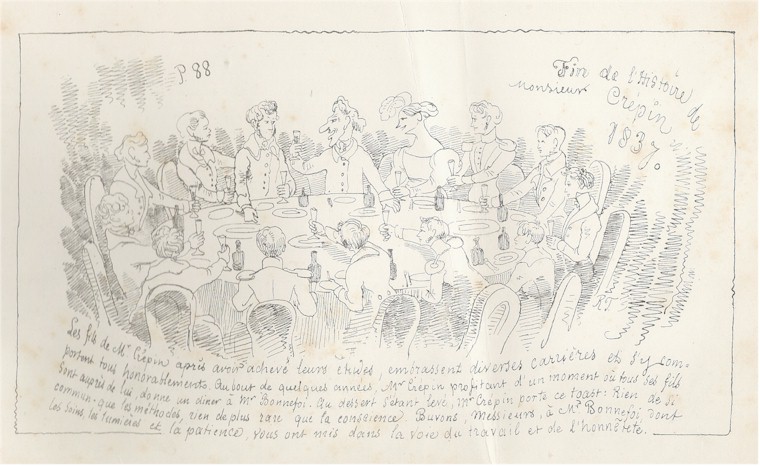 P 88
Fin de l'Histoire de
Monsieur Crépin
1837.
RT
Les fils de Mr Crépin après avoir achevé leurs études, embrassent diverses carrières et s'y com-
portent tous honorablements. Au bout de quelques années, Mr Crépin profitant d'un moment où tous ses fils
sont auprès de lui, donne un diner à Mr Bonnefoi. Au dessert s'étant levé, Mr Crépin porte ce toast: Rien de si
commun que les méthodes, rien de plus rare que la conscience. Buvons, Messieurs, à Mr Bonnefoi dont
les soins, les lumières et la patience, vous ont mis dans la voie du travail et de l'honnêteté.